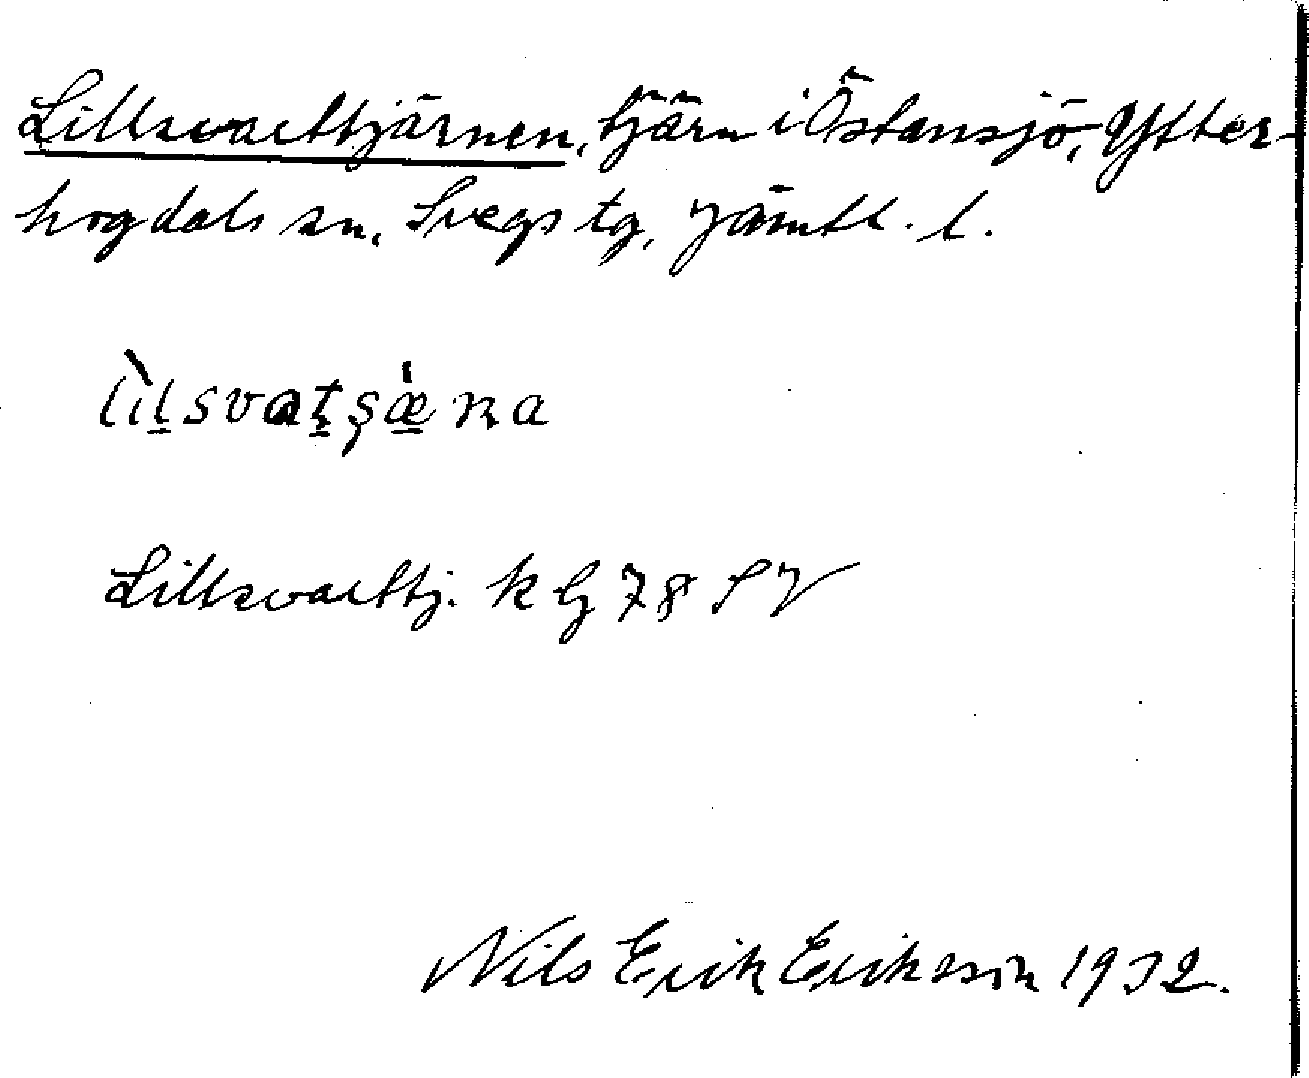 Lillsvarttjärnen, tjärn i Östansjö, Ytter-
hogdals sn, Svegs tg, Jämtl. l.
lìl̠svat̠ʂæ̠̍ɳa
Lillsvarttj. k bj 78 SV
Nils Erik Eriksson 1932.